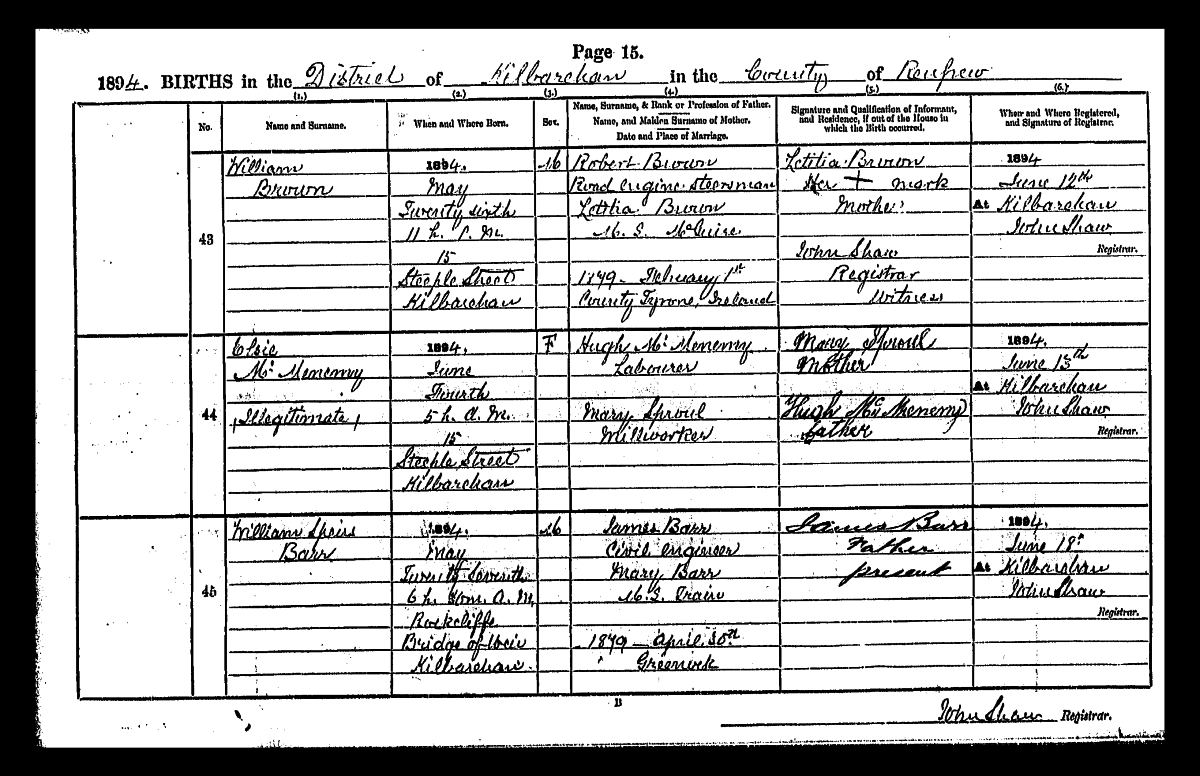 Page 15.
1894. BIRTHS in the District of Kilbarchan in the County of Renfrew
(1.) (2.) (3.) (4.) (5.) (6.)
No. Name and Surname. When and Where Born. Sex. Name, Surname, & Rank or Profession of Father. Signature and Qualification of Informant, When and Where Registered,
Name, and Maiden Surname of Mother. and Residence, if out of the House in and Signature of Registrar.
Date and Place of Marriage. which the Birth occurred.
43
William
Brown
1894.
May
Twenty sixth
11 h. P. M.
15
Steeple Street
Kilbarchan
M
Robert Brown
Road engine steersman
Letitia Brown
M. S. McGuire
1879 - February 1st
County Tyrone, Ireland
Letitia Brown
Her + mark
Mother
John Shaw
Registrar
Witness
1894
June 12th
At Kilbarchan
John Shaw
Registrar.
44
Elsie
Mc Menemy
(Illegitimate)
1894.
June
Fourth
5 h. A. M.
15
Steeple Street
Kilbarchan
F
Hugh Mc Menemy
Labourer
Mary Sproul
Millworker
Mary Sproul
Mother
Hugh Mc Menemy
father
1894.
June 13th
At Kilbarchan
John Shaw
Registrar.
45
William Speirs
Barr
1894.
May
Twenty Seventh
6 h. A. M.
Rockcliffe
Bridge of Weir
Kilbarchan
M
James Barr
Civil engineer
Mary Barr
M. S. Train
1879 - April 30th
Greenock
James Barr
Father
present
1894.
June 18th
At Kilbarchan
John Shaw
Registrar.
B
John Shaw Registrar.